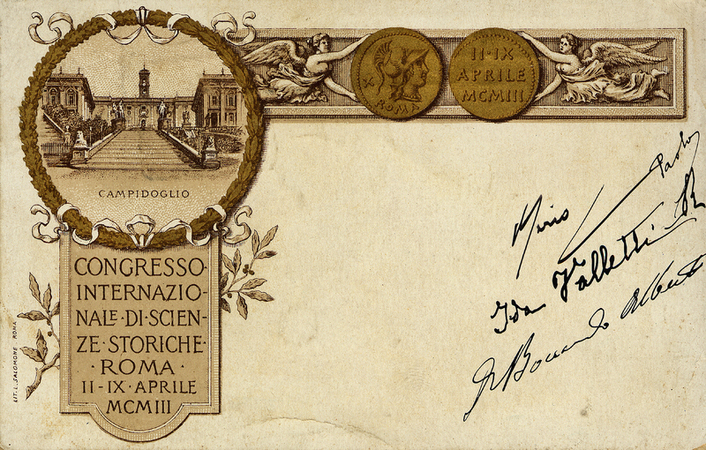 CAMPIDOGLIO
CONGRESSO
INTERNAZIO-
NALE·DI·SCIEN-
ZE·STORICHE·
·ROMA·
II-IX·APRILE
MCMIII
X
ROMA
II-IX
APRILE
MCMIII
LIT. L. SALOMONE ROMA
Paolo
Ida Valletti
Alberto